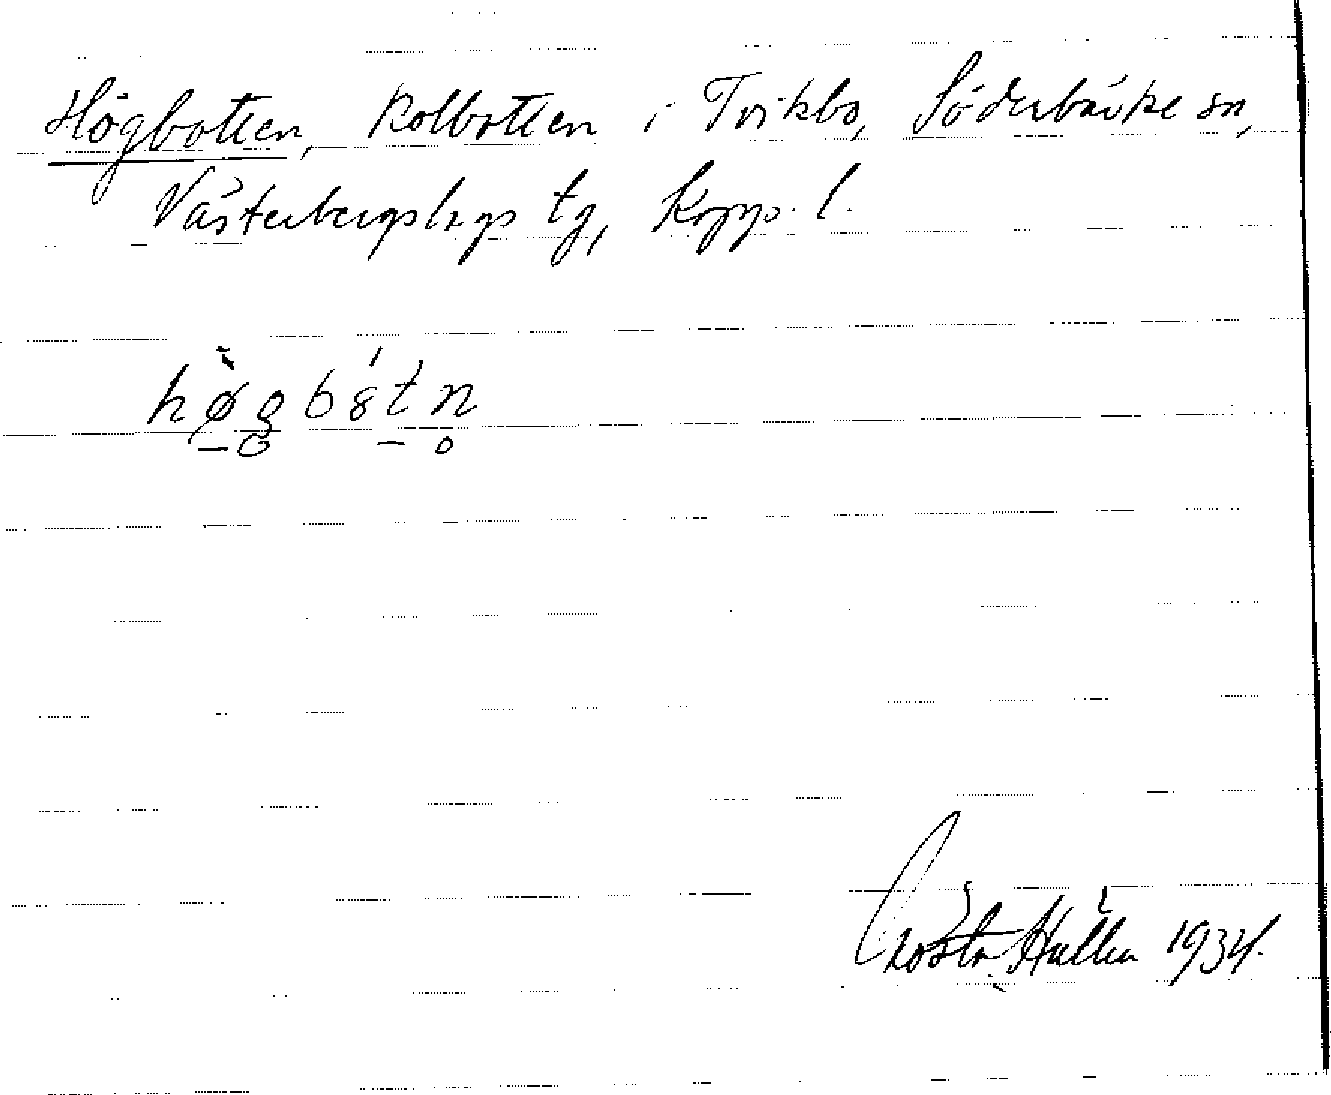 Högbotten, kolbotten i Tvikbo, Söderbärke sn,
Västerbergslags tg, Kopp. l.
hø̀gbótn̥
Gösta Hallén 1934.